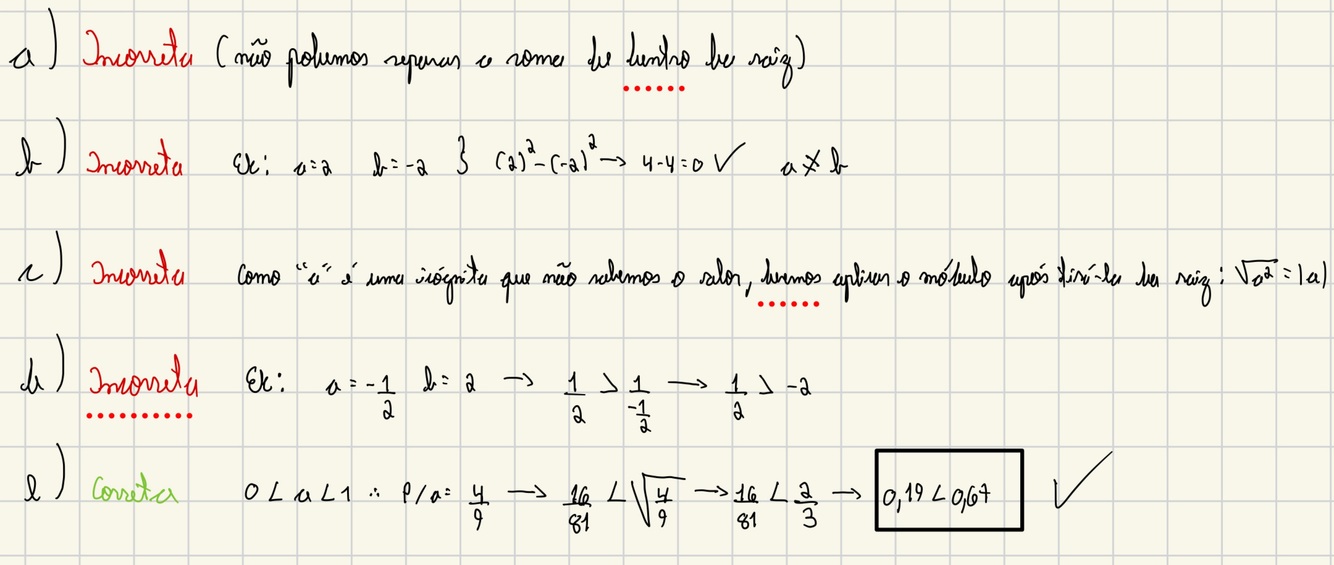 a) Incorreta (não podemos separar a soma de dentro da raiz)
b) Incorreta Ex: a=2 b=-2 } (2)²-(-2)² → 4-4=0 ✓ a≠b
c) Incorreta Como "a" é uma icógnita que não sabemos o valor, devemos aplicar o módulo após tirá-la da raiz: √a² = |a|
d) Incorreta Ex: a = -1/2 b = 2 → 1/2 > 1/(-1/2) → 1/2 > -2
e) Correta 0 < a < 1 ∴ P/a = 4/9 → 16/81 < √(4/9) → 16/81 < 2/3 → 0,19 < 0,67 ✓